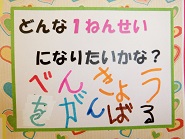 どんな1ねんせい
になりたいかな？
べんきょう
をがんばる